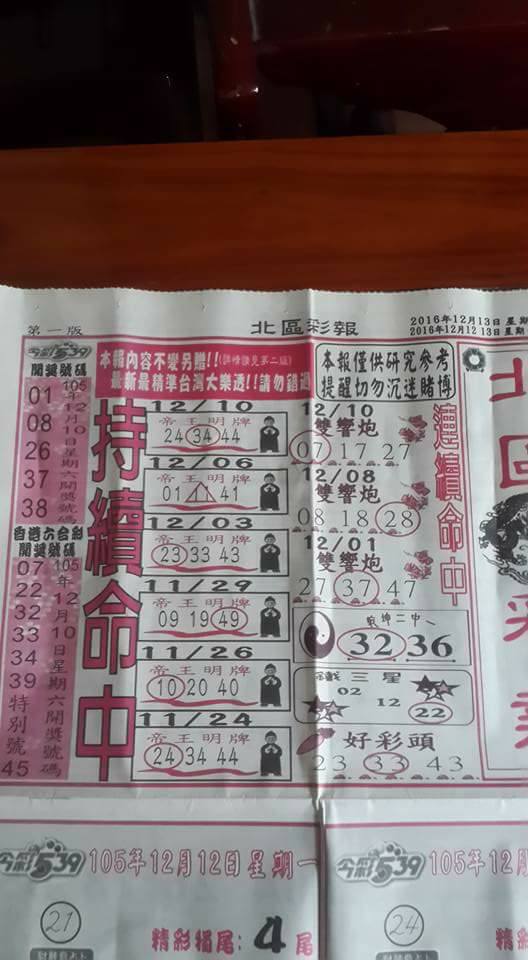 第一版
北區彩報
2016年12月13日 星期
2016年12月12 13日 星期
今彩539
開獎號碼
105年12月10日星期六開獎號碼
01
08
26
37
38
香港六合彩
開獎號碼
105年12月10日星期六開獎號碼
07
22
32
33
34
39
特別號
45
本報內容不變另贈!!(詳情請見第二版)
最新最精準台灣大樂透!!請勿錯過
持續命中
12/10
帝王明牌
24 34 44
12/06
帝王明牌
01 11 41
12/03
帝王明牌
23 33 43
11/29
帝王明牌
09 19 49
11/26
帝王明牌
10 20 40
11/24
帝王明牌
24 34 44
本報僅供研究參考
提醒切勿沉迷賭博
12/10
雙響炮
07 17 27
12/08
雙響炮
08 18 28
12/01
雙響炮
27 37 47
連續命中
乾坤二中一
32 36
鐵三星
02
12
22
好彩頭
23 33 43
北
今彩539
105年12月12日星期一
21
精彩損尾:4尾
今彩539
105年12月
24
精彩